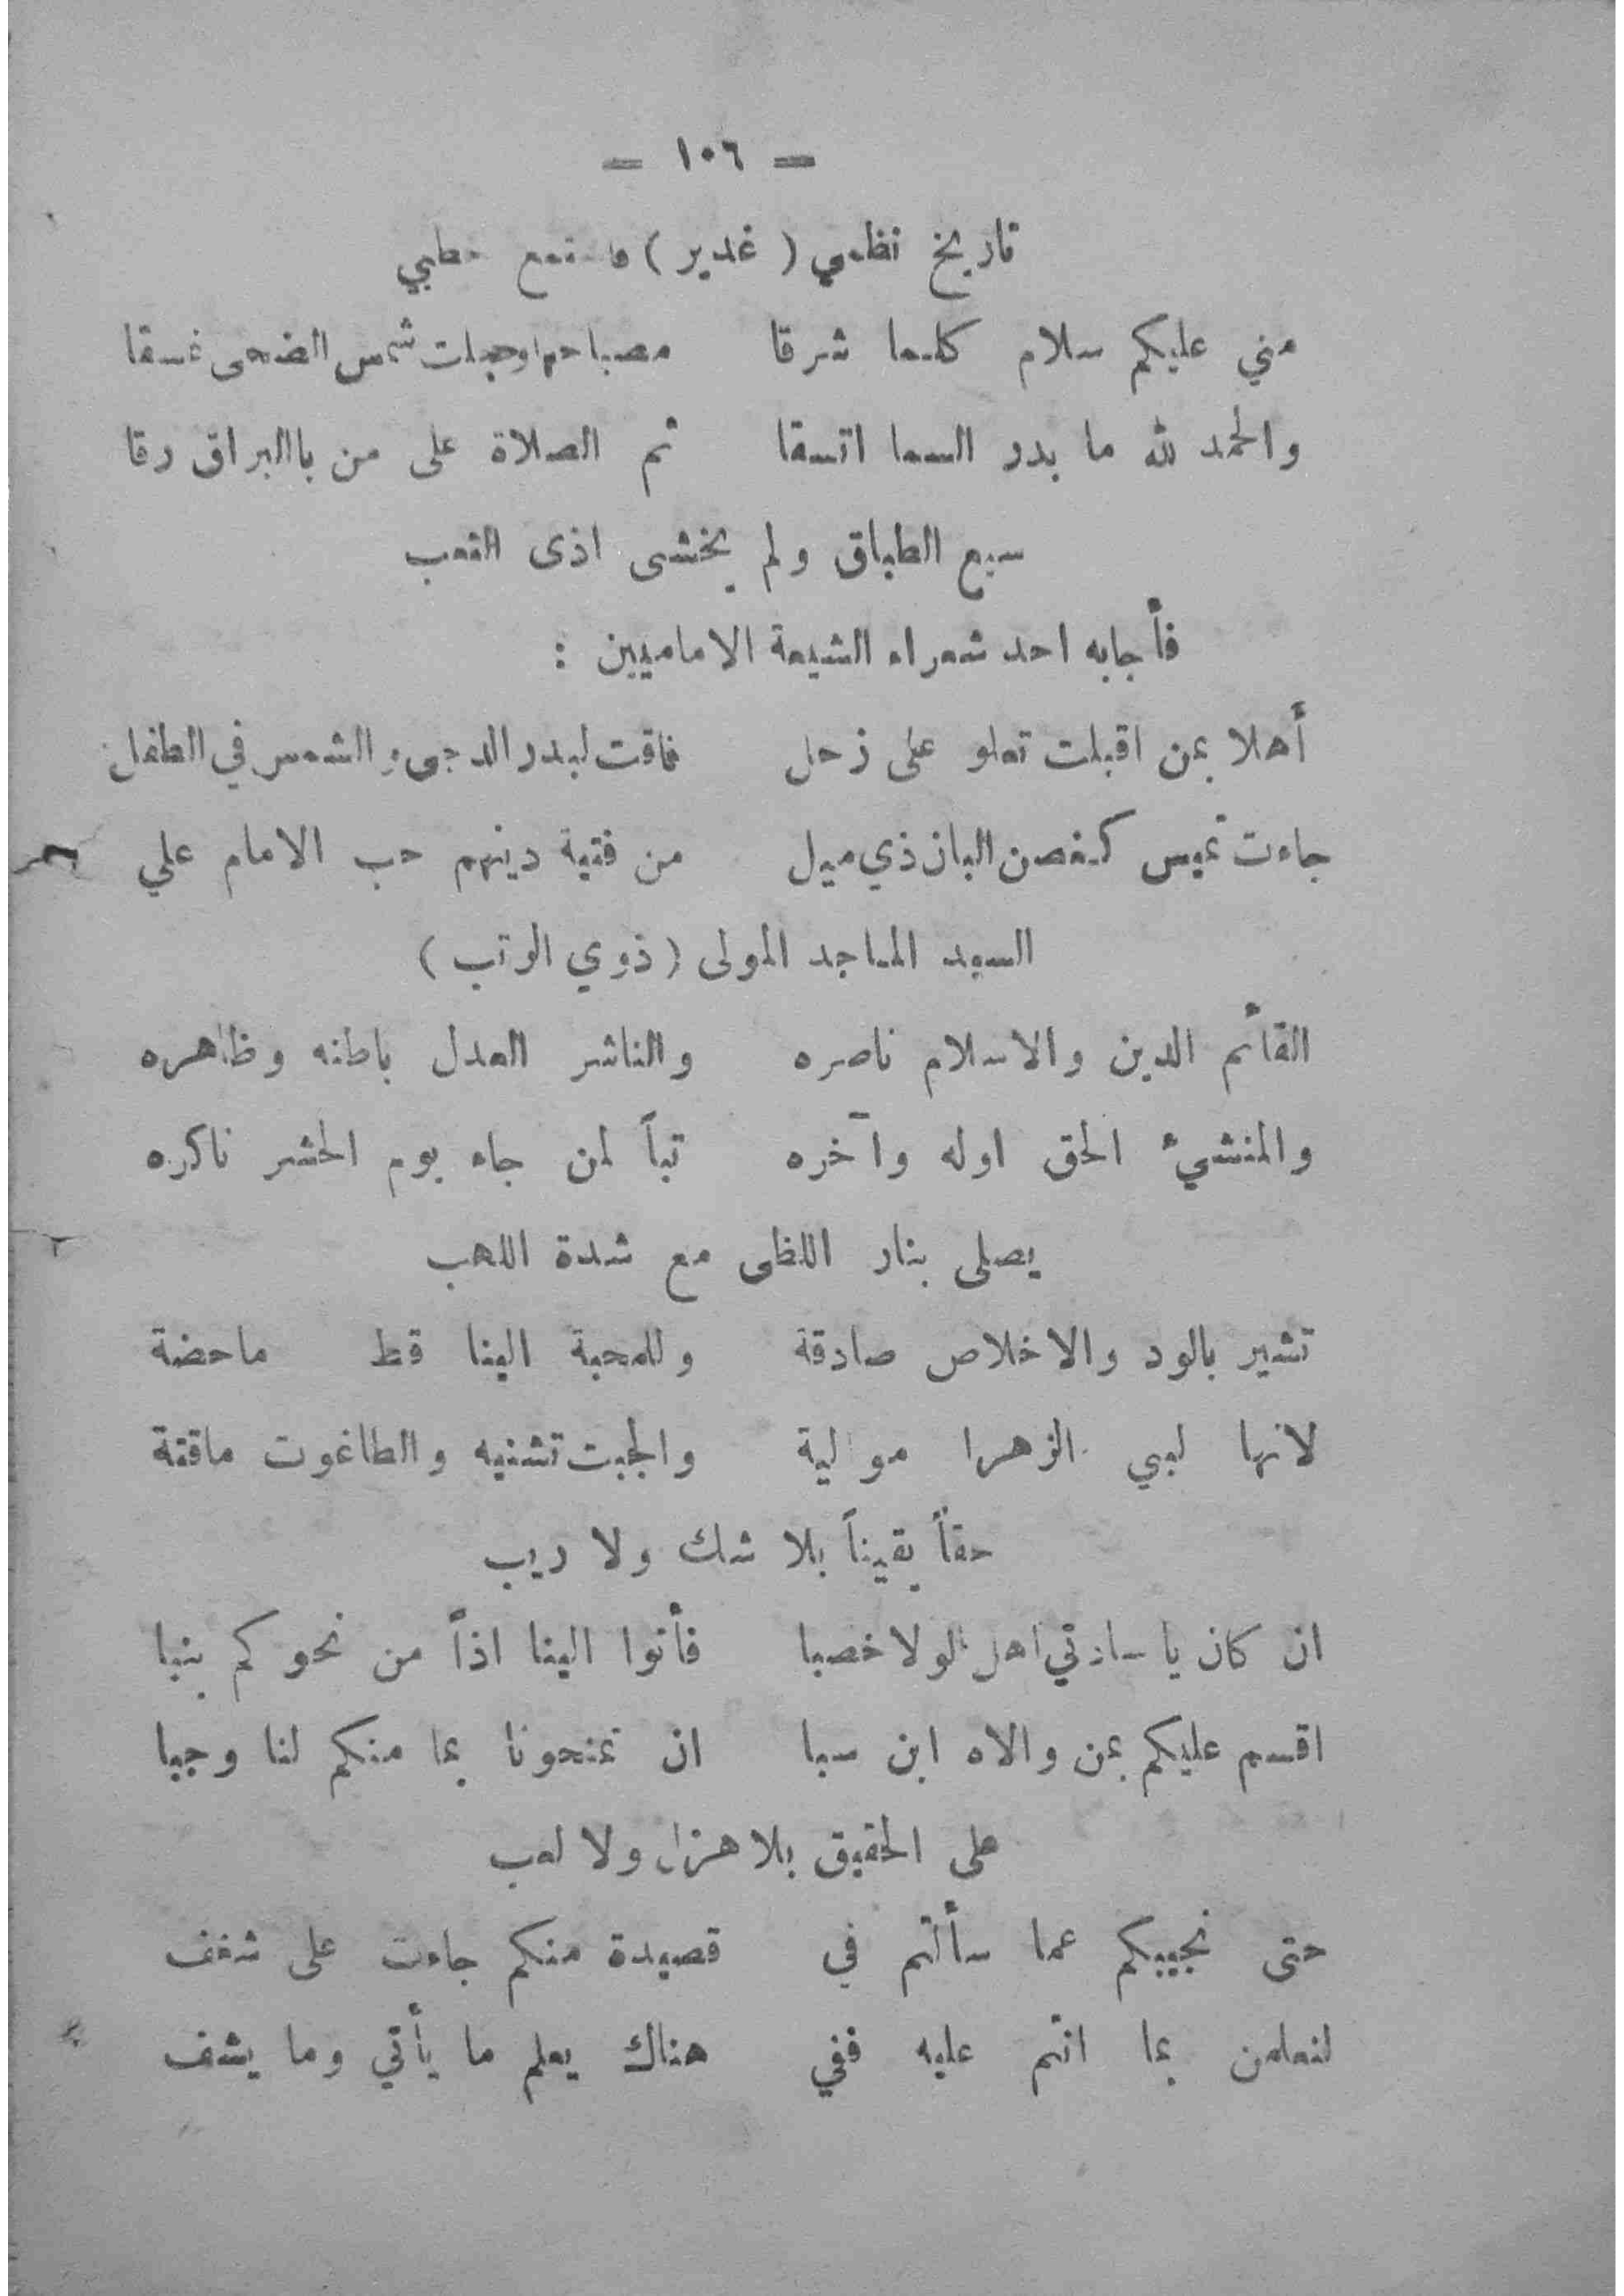 — ١٠٦ —
تاريخ نظمي ( غدير )
مني عليكم سلام كلما شرقا مصباحها وجلت شمس الضحى غسقا
والحمد لله ما بدر السما اتسقا ثم الصلاة على من باالبراق رقا
سبع الطباق ولم يخشى اذى التعب
فأجابه احد شعراء الشيعة الاماميين :
أهلا بمن اقبلت تعلو على زحل فاقت لبدر الدجى والشمس في الطفل
جاءت تميس كغصن البان ذي ميل من فتية دينهم حب الامام علي
السيد الماجد المولى ( ذوي الرتب )
القائم الدين والاسلام ناصره والناشر العدل باطنه وظاهره
والمنشيء الحق اوله وآخره تباً لمن جاء يوم الحشر ناكره
يصلى بنار اللظى مع شدة اللهب
تشير بالود والاخلاص صادقة وللمحبة الينا قط ماحضة
لانها لبي الزهرا موالية والجبت تشنيه والطاغوت ماقتة
حقاً يقيناً بلا شك ولا ريب
ان كان يا سادتي اهل الولا خصبا فأتوا الينا اذاً من نحوكم بنبا
اقسم عليكم بمن والاه ابن سبا ان تمنحونا بما منكم لنا وجبا
على الحقيق بلا هزل ولا لعب
حتى نجيبكم عما سألتم في قصيدة منكم جاءت على شغف
لنعلمن بما انتم عليه ففي هناك يعلم ما يأتي وما يشف